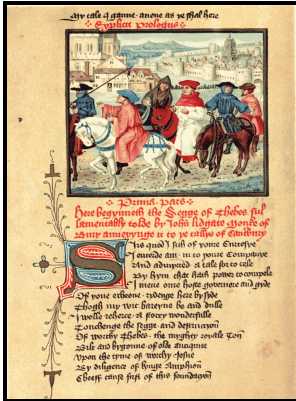 My tale I ganne anone as ye shal here
Explicit Prologus
Prima Pars
Here begynneth the Segge of Thebes ful
lamentably tolde by John Lidgate Monke of
Bury annexynge it to ye tallys of Canterbury
Sirs quod I sith of youre curtesye
I entrede am in to youre Companye
And admytted a tale for to telle
By hym that hath power to compelle
I mene oure hoste governere and gyde
Of youe echeone rydenge here by syde
Thogh my wit bareyne be and dulle
I wolle reherce a story wonderfulle
Towchenge the segge and destruccyon
Of worthy Thebes the myghty royale Ton
Bilt and bygonne of olde antiquite
Upon the tyme of worthy Josue
By diligence of kynge Amphion
Cheeff cause first of this foundacyon